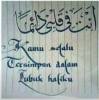 أنت في قلبي دائما
Kamu selalu
Tersimpan dalam
Lubuk hatiku